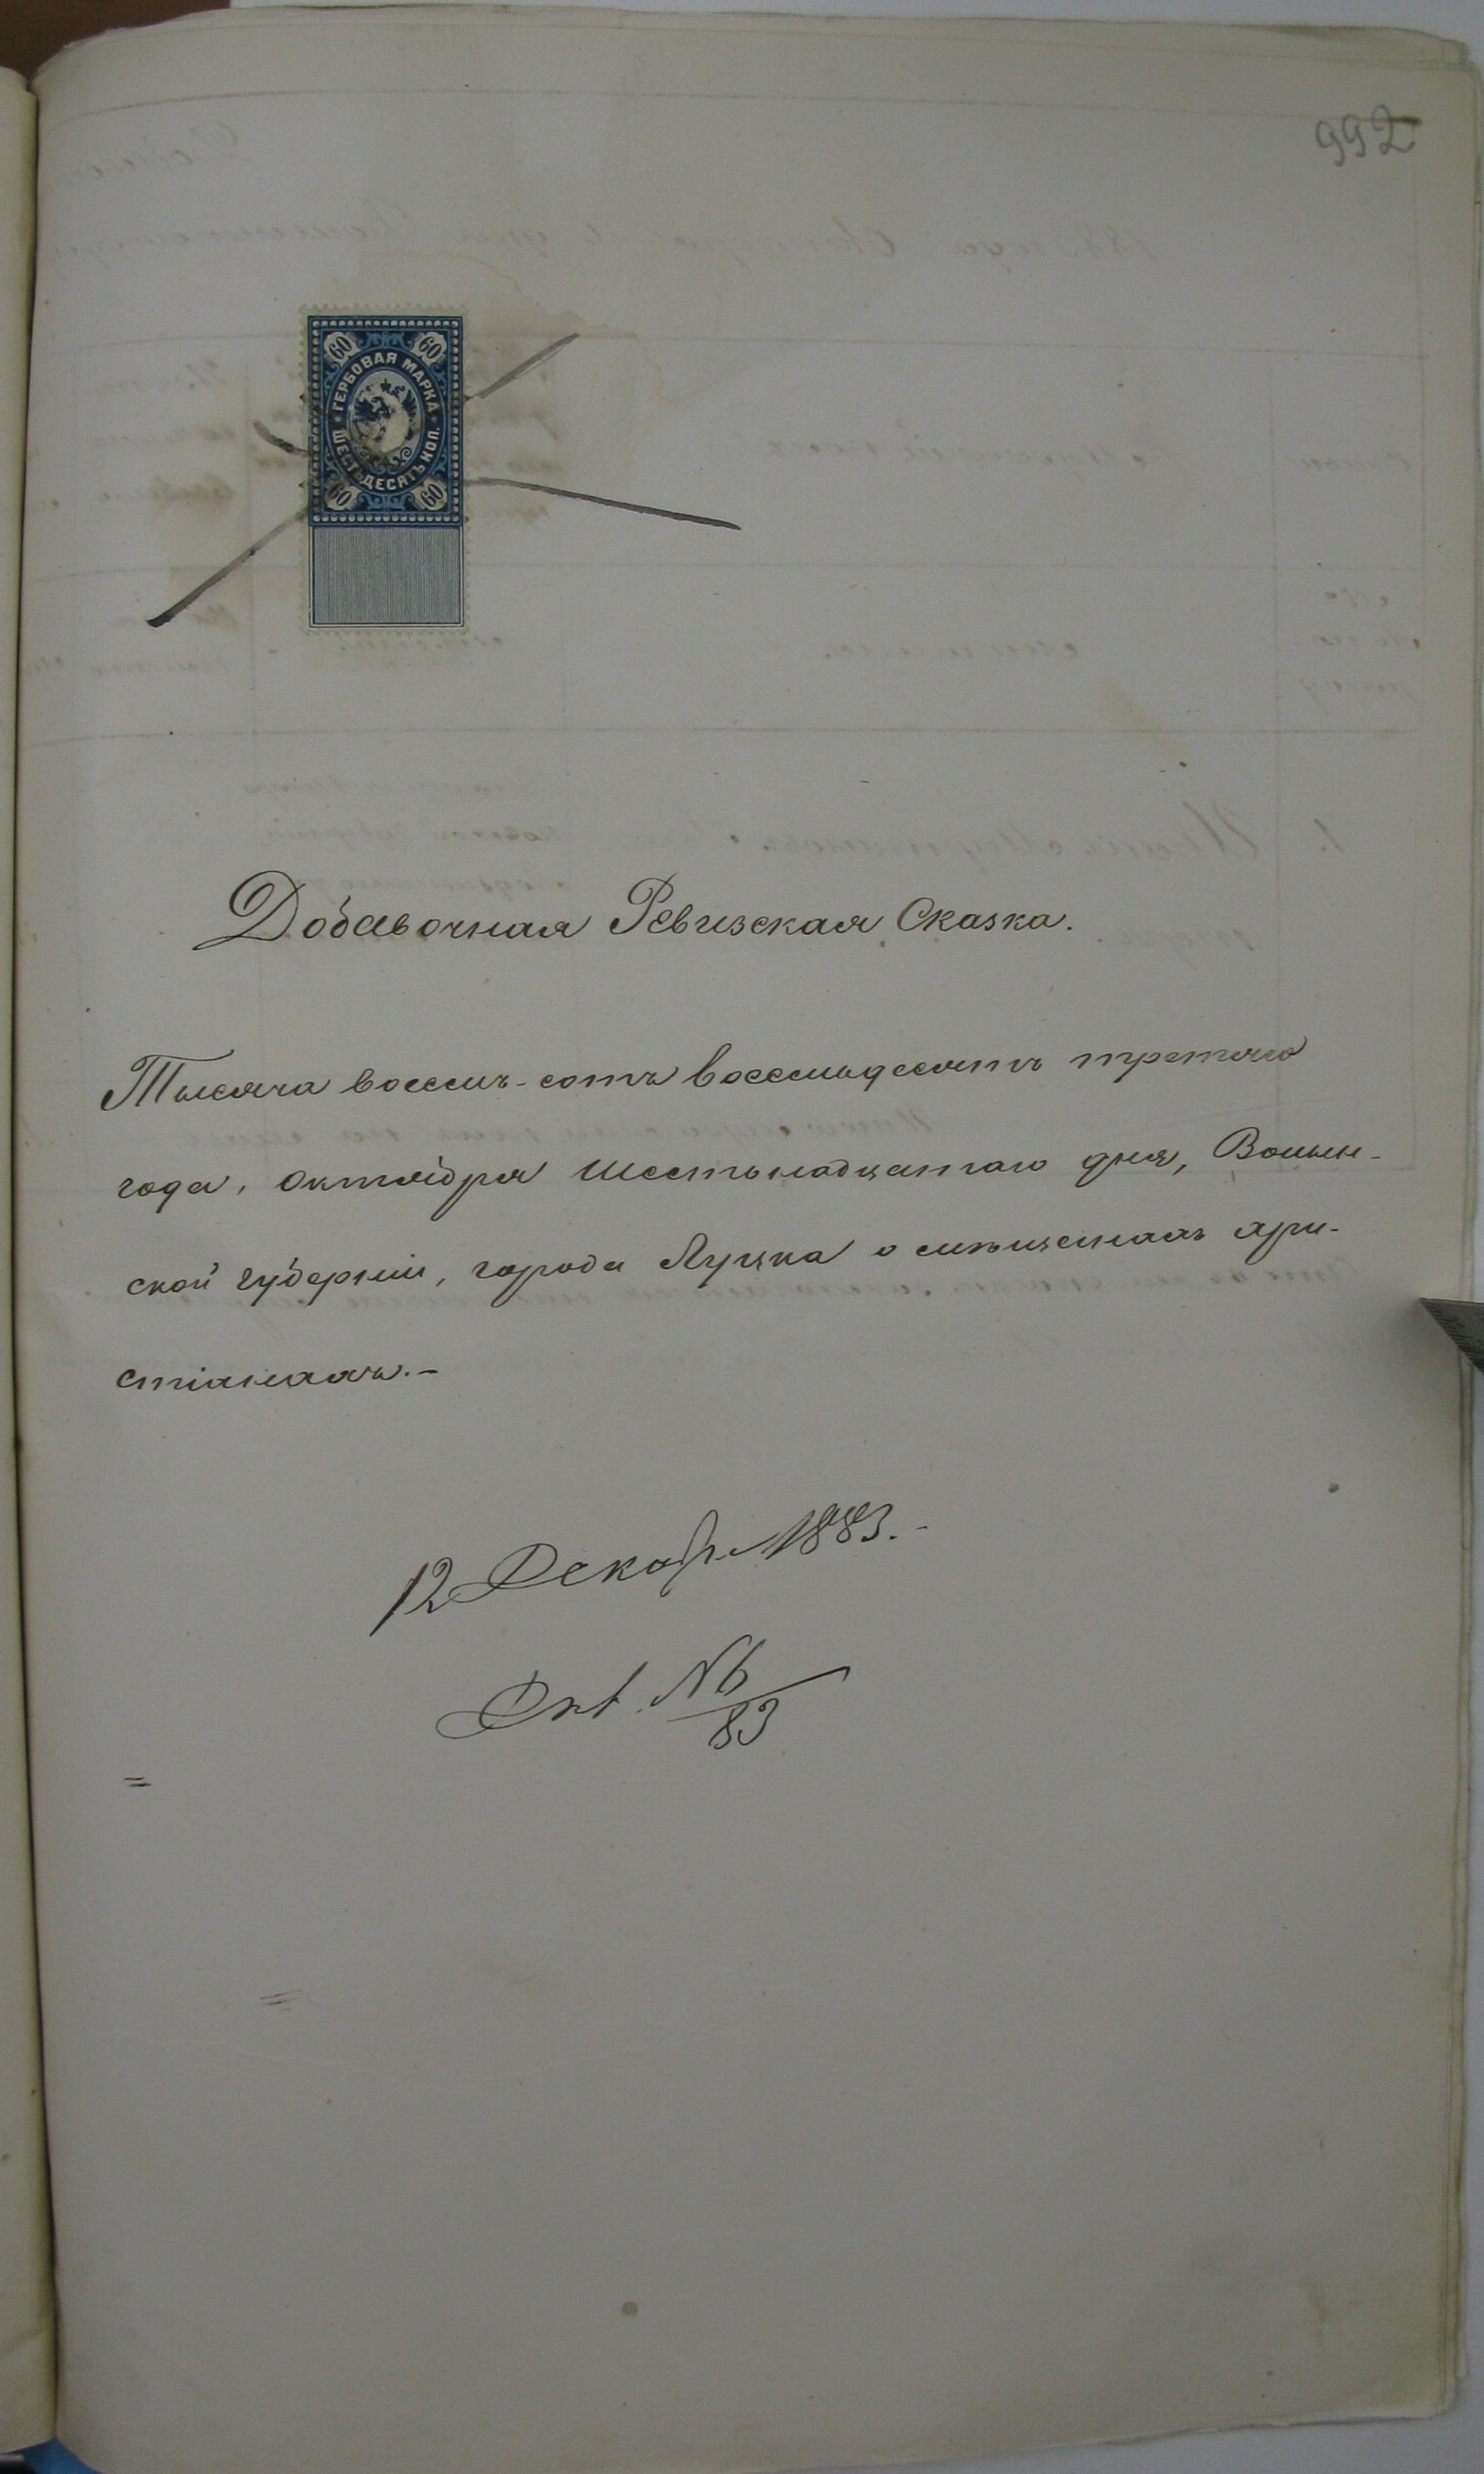 992
60 60
ГЕРБОВАЯ МАРКА
ШЕСТЬДЕСЯТЪ КОП.
60 60
Добавочная Ревизская Сказка.
Тысяча восемь-сотъ восемьдесятъ третяго
года, октября шестьнадцатаго дня, Волын-
ской губерніи, города Луцка о мѣщанахъ хри-
стіанахъ.-
12 Декабр. 1883.-
№
83